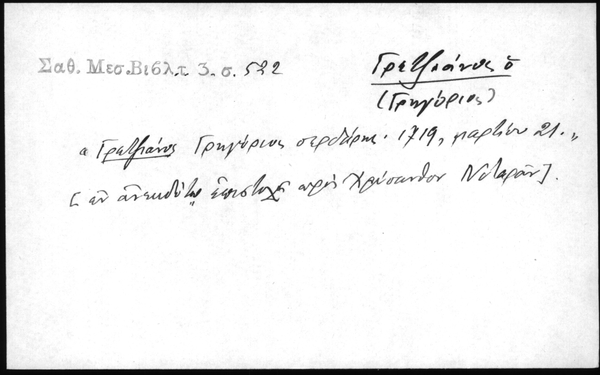 Σαθ. Μεσ. Βιβλ. τ. 3. σ. 522
Γρετζιάνος ὁ
(Γρηγόριος)
"Γρετζιάνος Γρηγόριος σερδάρης. 1719, μαρτίου 21.„
[ἐν ἀνεκδότῳ ἐπιστολῇ πρὸς Χρύσανθον Νοταρᾶν].